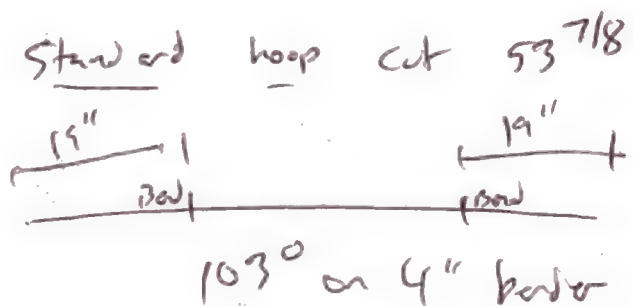 Standard hoop cut 53 7/8
19" 19"
Bend Bend
103° on 4" bender